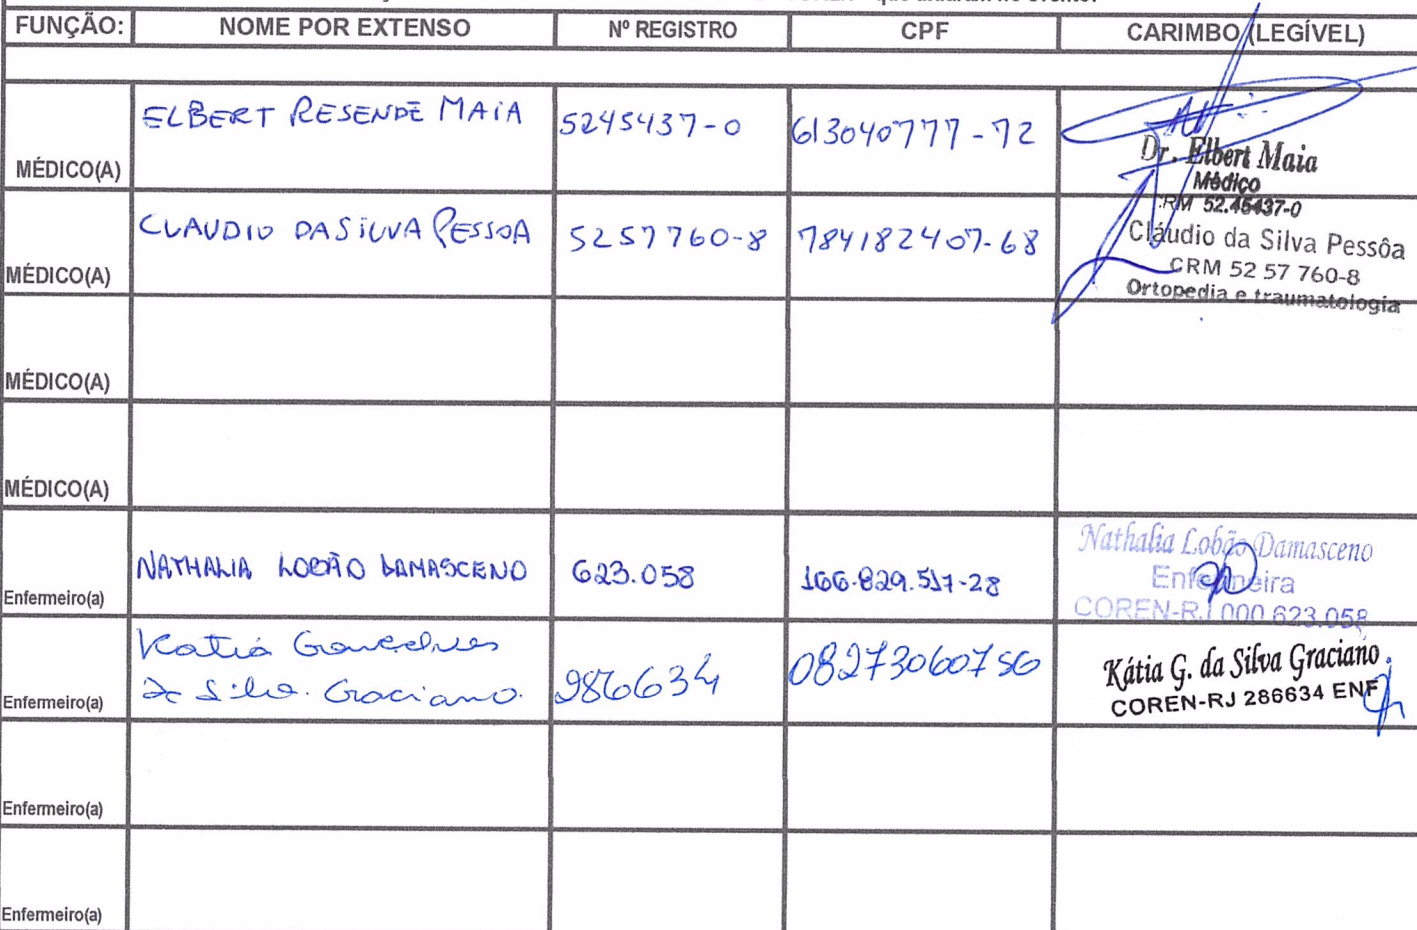 que atuaram no evento:
FUNÇÃO: NOME POR EXTENSO Nº REGISTRO CPF CARIMBO (LEGÍVEL)
MÉDICO(A) ELBERT RESENDE MAIA 5245437-0 613040777-72
Dr. Elbert Maia
Médico
RM 52.45437-0
MÉDICO(A) CLAUDIO DA SILVA PESSOA 5257760-8 784182407-68
Cláudio da Silva Pessôa
CRM 52 57 760-8
Ortopedia e traumatologia
MÉDICO(A)
MÉDICO(A)
Enfermeiro(a) NATHALIA LOBÃO DAMASCENO 623.058 166.829.517-28
Nathalia Lobão Damasceno
Enfermeira
COREN-RJ 000.623.058
Enfermeiro(a) Katia Gonçalves
da Silva Graciano. 286634 08273060756
Kátia G. da Silva Graciano
COREN-RJ 286634 ENF
Enfermeiro(a)
Enfermeiro(a)